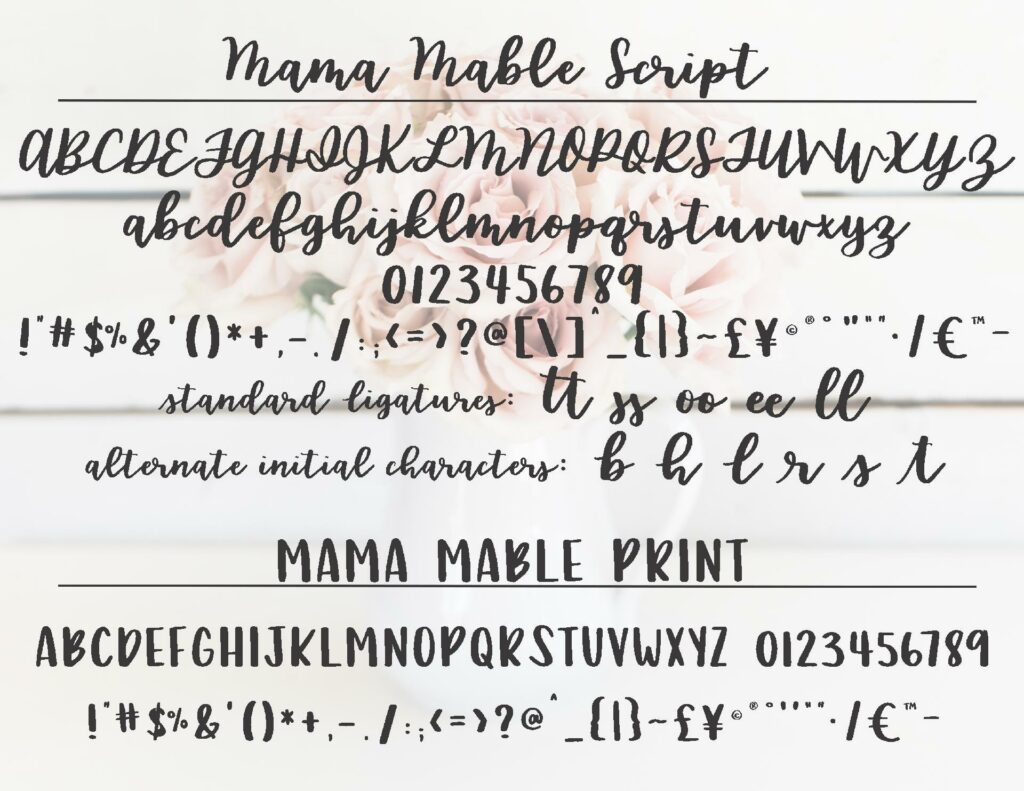 Mama Mable Script
ABCDEFGHIJKLMNOPQRSTUVWXYZ
abcdefghijklmnopqrstuvwxyz
0123456789
!"#$%&'()*+,-./:;<=>?@[\]^_{|}~£¥©®°""""·/€™-
standard ligatures: tt ss oo ee ll
alternate initial characters: b h l r s t
MAMA MABLE PRINT
ABCDEFGHIJKLMNOPQRSTUVWXYZ 0123456789
!"#$%&'()*+,-./:;<=>?@^_{|}~£¥©®°''""·/€™-